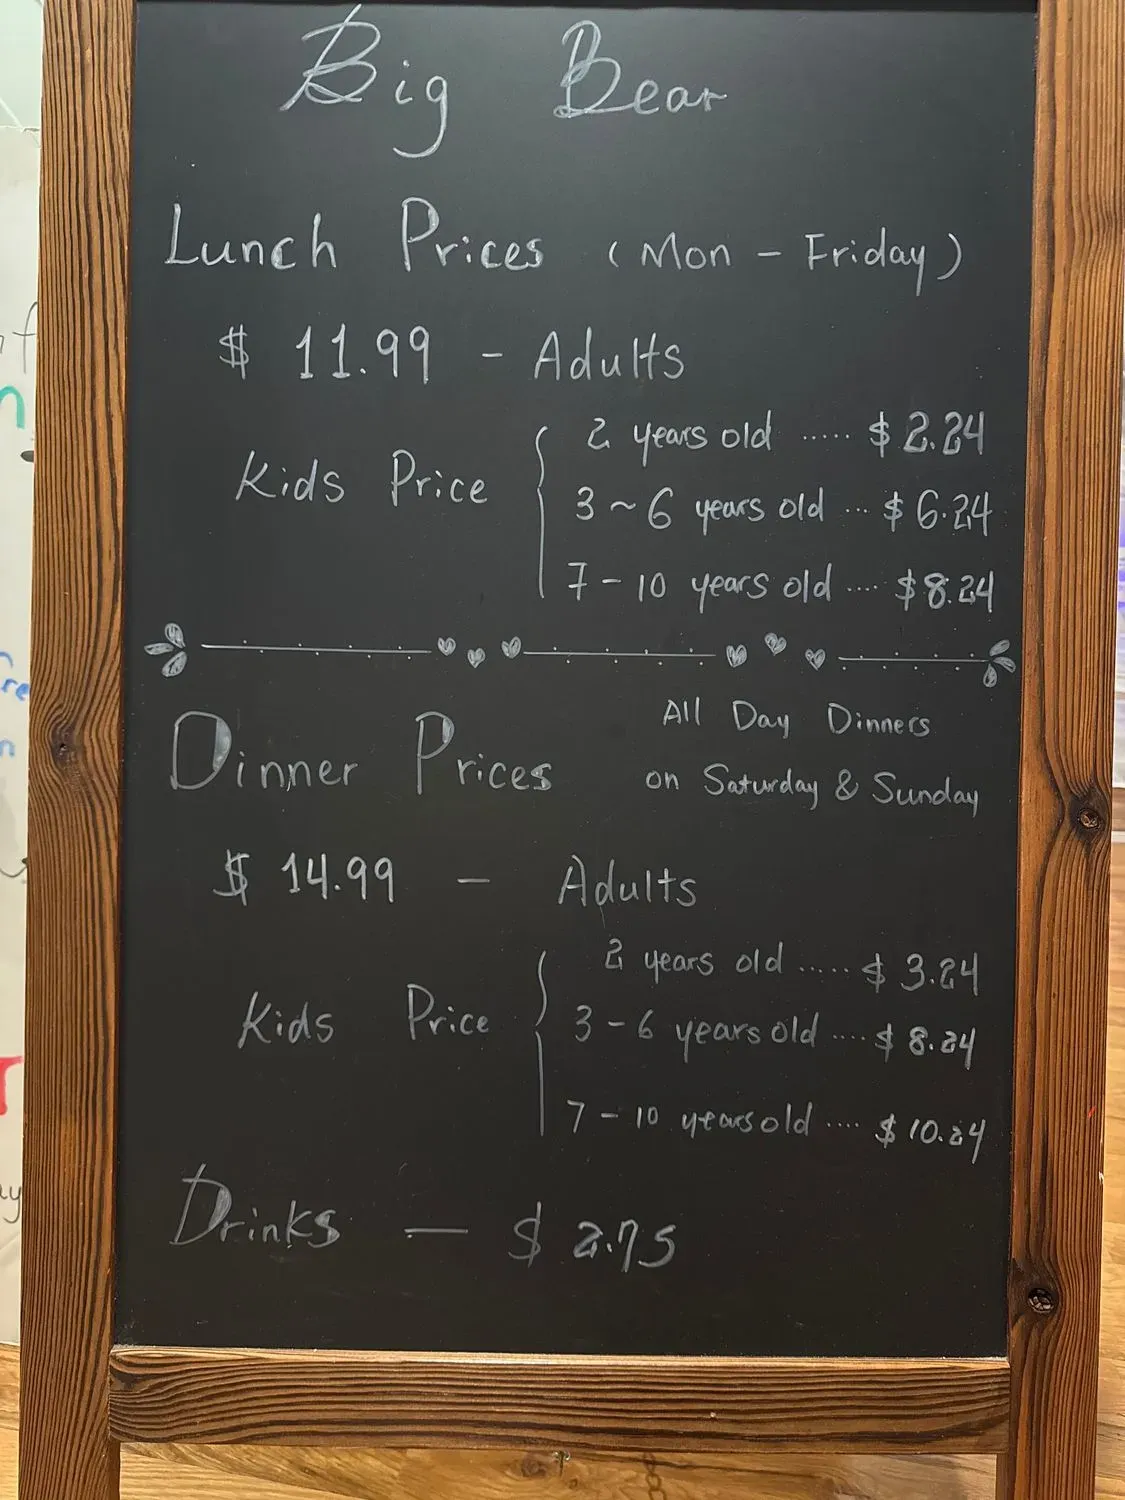 Big Bear
Lunch Prices (Mon - Friday)
$ 11.99 - Adults
Kids Price
2 years old ..... $2.24
3 ~ 6 years old ... $6.24
7 - 10 years old .... $8.24
Dinner Prices
All Day Dinners
on Saturday & Sunday
$ 14.99 - Adults
Kids Price
2 years old ..... $ 3.24
3 - 6 years old .... $ 8.24
7 - 10 years old .... $ 10.24
Drinks — $ 2.75